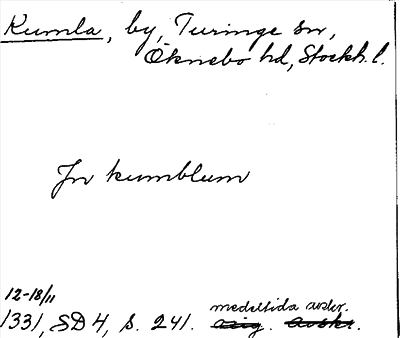 Kumla, by, Turinge sn,
Öknebo hd, Stockh. l.
In kumblum
12-18/11
medeltida avskr.
1331, SD 4, s. 241. orig. avskr.